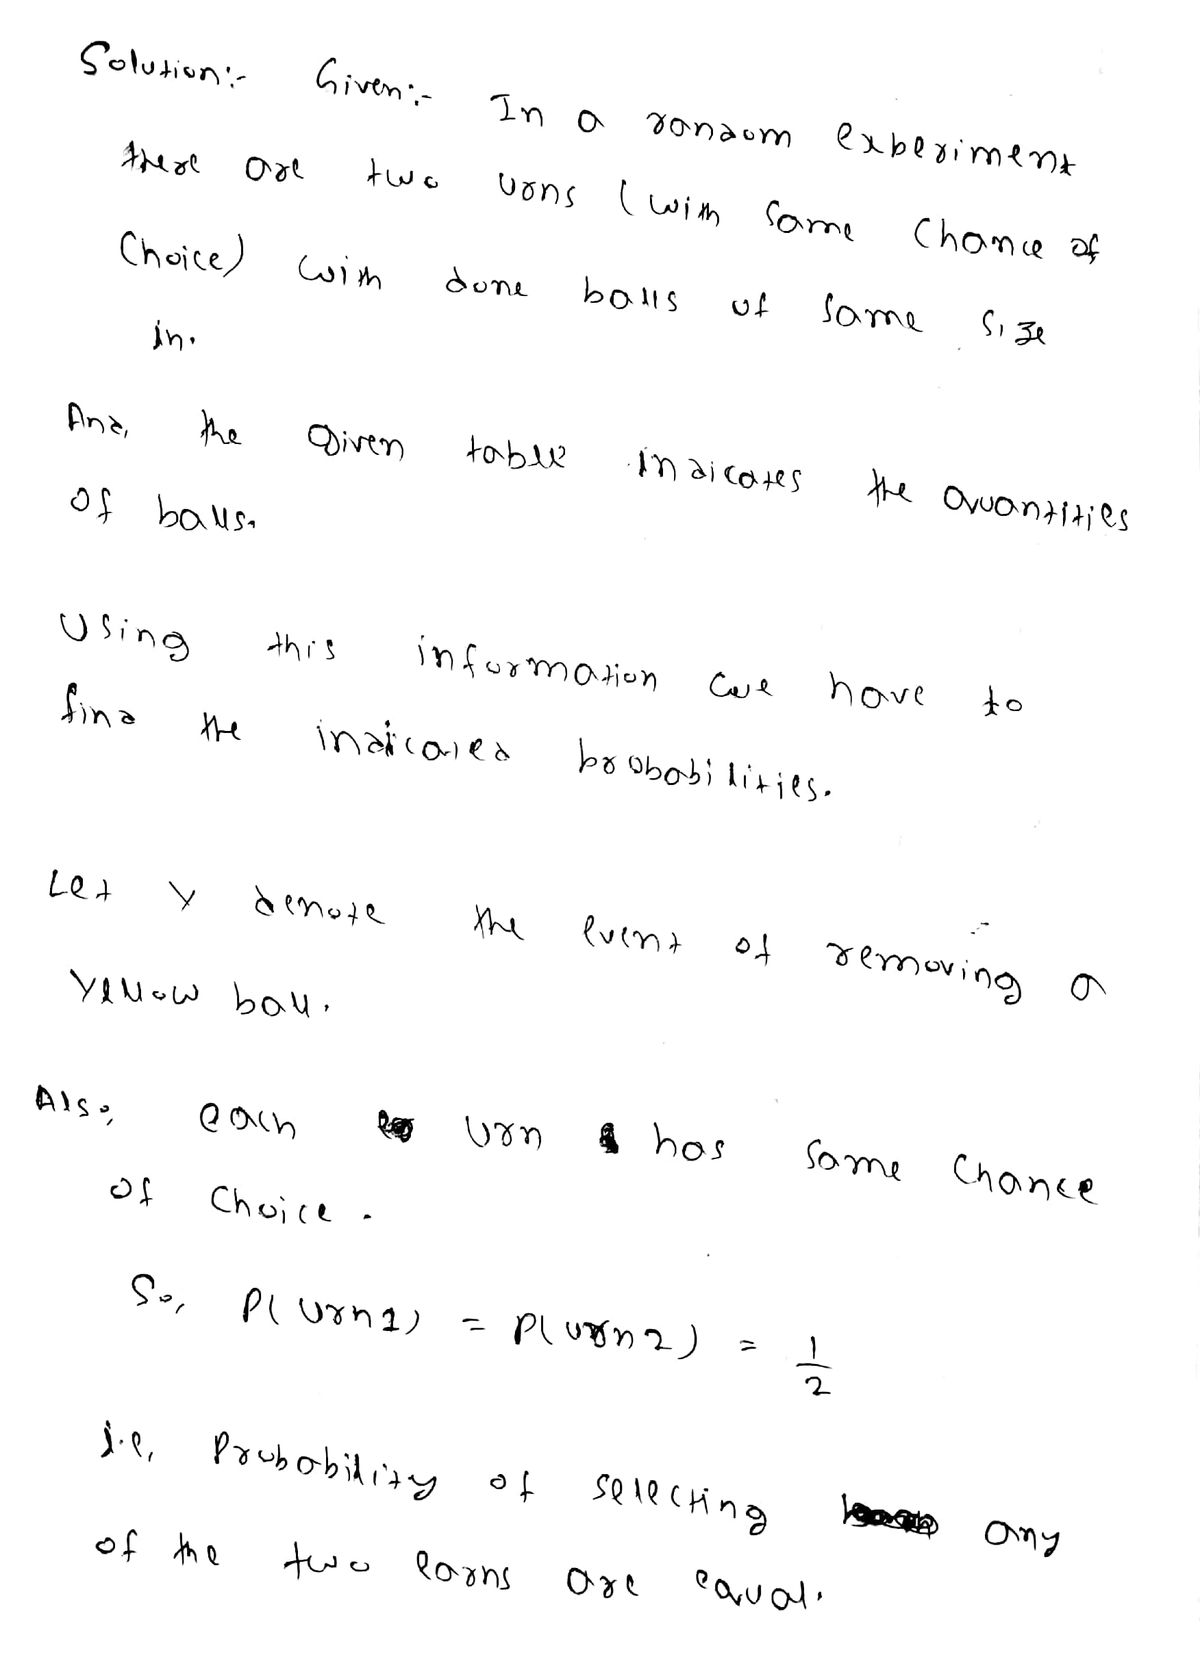 Solution:- Given:- In a random experiment
there are two urns (with same chance of
choice) with done balls of same size
in.
And, the given table indicates the quantities
of balls.
Using this information we have to
find the indicated probabilities.
Let Y denote the event of removing a
yellow ball.
Also, each urn has same chance
of choice.
So, P(urn1) = P(urn2) = 1/2
i.e, Probability of selecting any
of the two earns are equal.